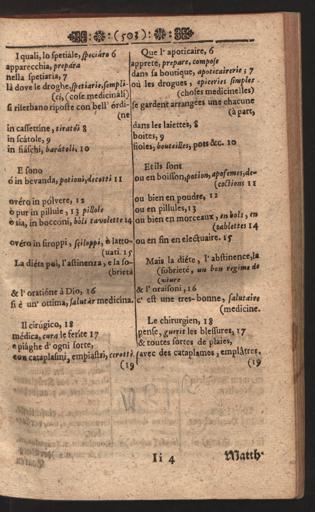 (503)
I quali, lo spetiále, speciáro 6
apparecchia, prepára
nella spetiaria, 7
là dove le droghe, spetiarie, sempli-
ci, (cose medicinali)
si riserbano riposte con bell' órdi-
(ne
in cassettine, tiratói 8
in scátole, 9
in fiáschi, barátoli, 10
E sono
ó in bevanda, potioni, decotti 11
ovéro in pólvere, 12
ò pur in pillule, 13 pillole
ò sia, in bocconi, bóli tavolette 14
ovéro in siroppi, sciloppi, ò latto-
uari. 15
La diéta poi, l'astinenza, e la so-
(brietà
& l' oratióne à Dio, 16
si è un' ottima, salutár medicina.
Il cirúgico, 18
médica, cura le ferite 17
e piaghe d' ogni sorte,
con cataplasmi, empiastri, cerotti.
(19
Que l' apoticaire, 6
apprete, prepare, compose
dans sa boutique, apoticairerie; 7
où les drogues, epiceries simples
(choses medicinelles)
se gardent arrangées une chacune
(à part,
dans les laiettes, 8
boites, 9
fioles, bouteilles, pots &c. 10
Et ils sont
ou en boisson, potion, aposemes, de-
(coctions 11
ou bien en poudre, 12
ou en pillules, 13
ou bien en morceaux, en bols, en
(tablettes 14
ou en fin en electuaire. 15
Mais la diéte, l' abstinence, la
(sobrieté, un bon regime de
(vivre
& l' oraison, 16
c' est une tres-bonne, salutaire
(medicine.
Le chirurgien, 18
pense, guerit les blessures, 17
& toutes sortes de plaies,
(avec des cataplames, emplâtres,
(19
Ii 4
Matth-